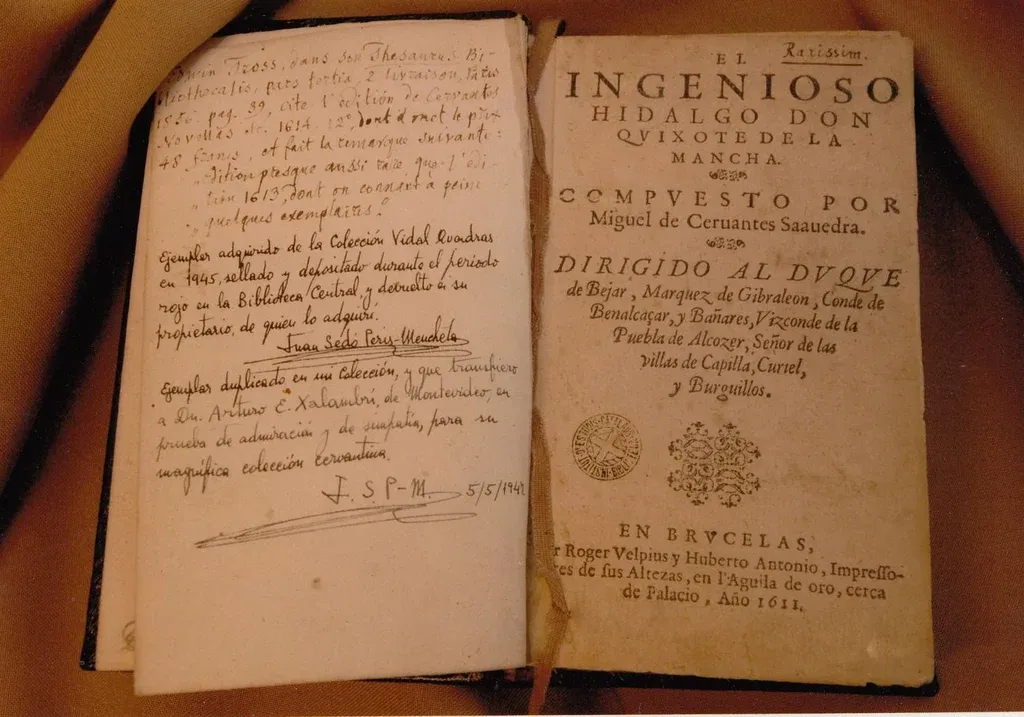 Edwin Tross, dans son Thesaurus Bi-
bliothecalis, pars tertia, 2 livraison, Paris
1856. pag. 39, cite l'édition de Cervantes
Novellas etc. 1614. 12º, dont il met le prix
48 francs, et fait la remarque suivante:
„ dition presque aussi rare que l'édi-
„ tion 1613, dont on connert à peine
„ quelques exemplaires."
Ejemplar adquirido de la Colección Vidal Quadras
en 1945, sellado y depositado durante el periodo
rojo en la Biblioteca Central, y devuelto a su
propietario, de quien lo adquirí.
Juan Sedó Peris-Mencheta
Ejemplar duplicado en mi colección, y que transfiero
a Dn. Arturo E. Xalambrí, de Montevideo, en
prueba de admiración y de simpatía, para su
magnífica colección cervantina.
J. S P-M. 5/5/194
Rarissim.
EL
INGENIOSO
HIDALGO DON
QVIXOTE DE LA
MANCHA.
COMPVESTO POR
Miguel de Ceruantes Saauedra.
DIRIGIDO AL DVQVE
de Bejar, Marquez de Gibraleon, Conde de
Benalcaçar, y Bañares, Vizconde de la
Puebla de Alcozer, Señor de las
villas de Capilla, Curiel,
y Burguillos.
EN BRVCELAS,
r Roger Velpius y Huberto Antonio, Impresso-
res de sus Altezas, en l'Aguila de oro, cerca
de Palacio, Año 1611.